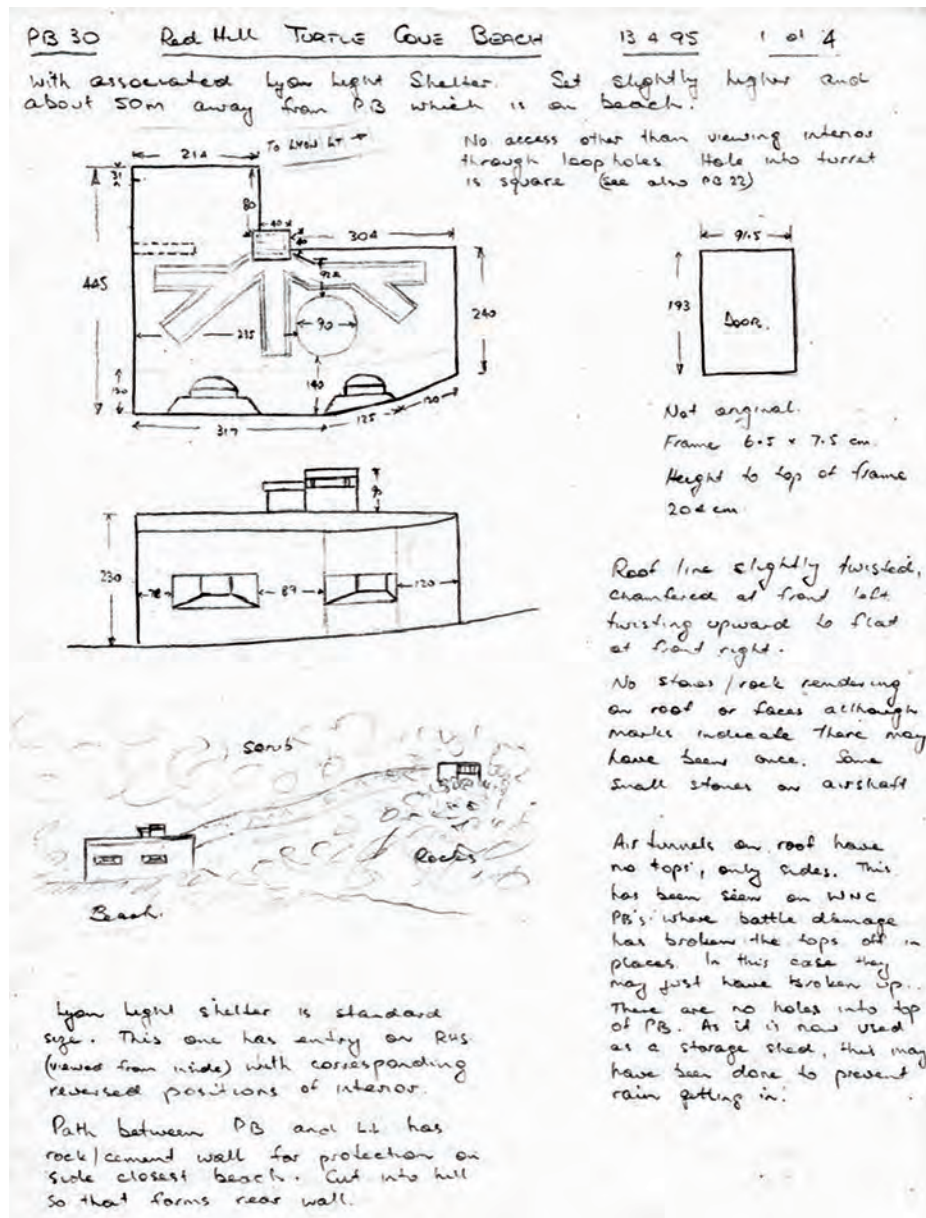 PB 30 Red Hill TURTLE COVE BEACH 13 4 95 1 of 4
With associated Lyon Light Shelter. Set slightly higher and
about 50m away from PB which is on beach.
No access other than viewing interior
through loopholes. Hole into turret
is square (see also PB 22)
TO LYON LT.
214
80
40
304
445
92
240
215
90
140
120
317
125
120
91.5
193
DOOR.
Not original.
Frame 6.5 x 7.5 cm.
Height to top of frame
204 cm
90
230
78
87
120
Roof line slightly twisted,
chamfered at front left
twisting upward to flat
at front right.
No stones/rock rendering
on roof or faces although
marks indicate there may
have been once. Some
small stones on airshaft
Scrub
Rocks
Beach.
Air tunnels on roof have
no tops, only sides. This
has been seen on WNC
PB's where battle damage
has broken the tops off in
places. In this case they
may just have broken up..
There are no holes into top
of PB. As it is now used
as a storage shed, this may
have been done to prevent
rain getting in.
Lyon Light shelter is standard
size. This one has entry on RHS
(viewed from inside) with corresponding
reversed positions of interior.
Path between PB and LL has
rock/cement wall for protection on
side closest beach. Cut into hill
so that forms rear wall.